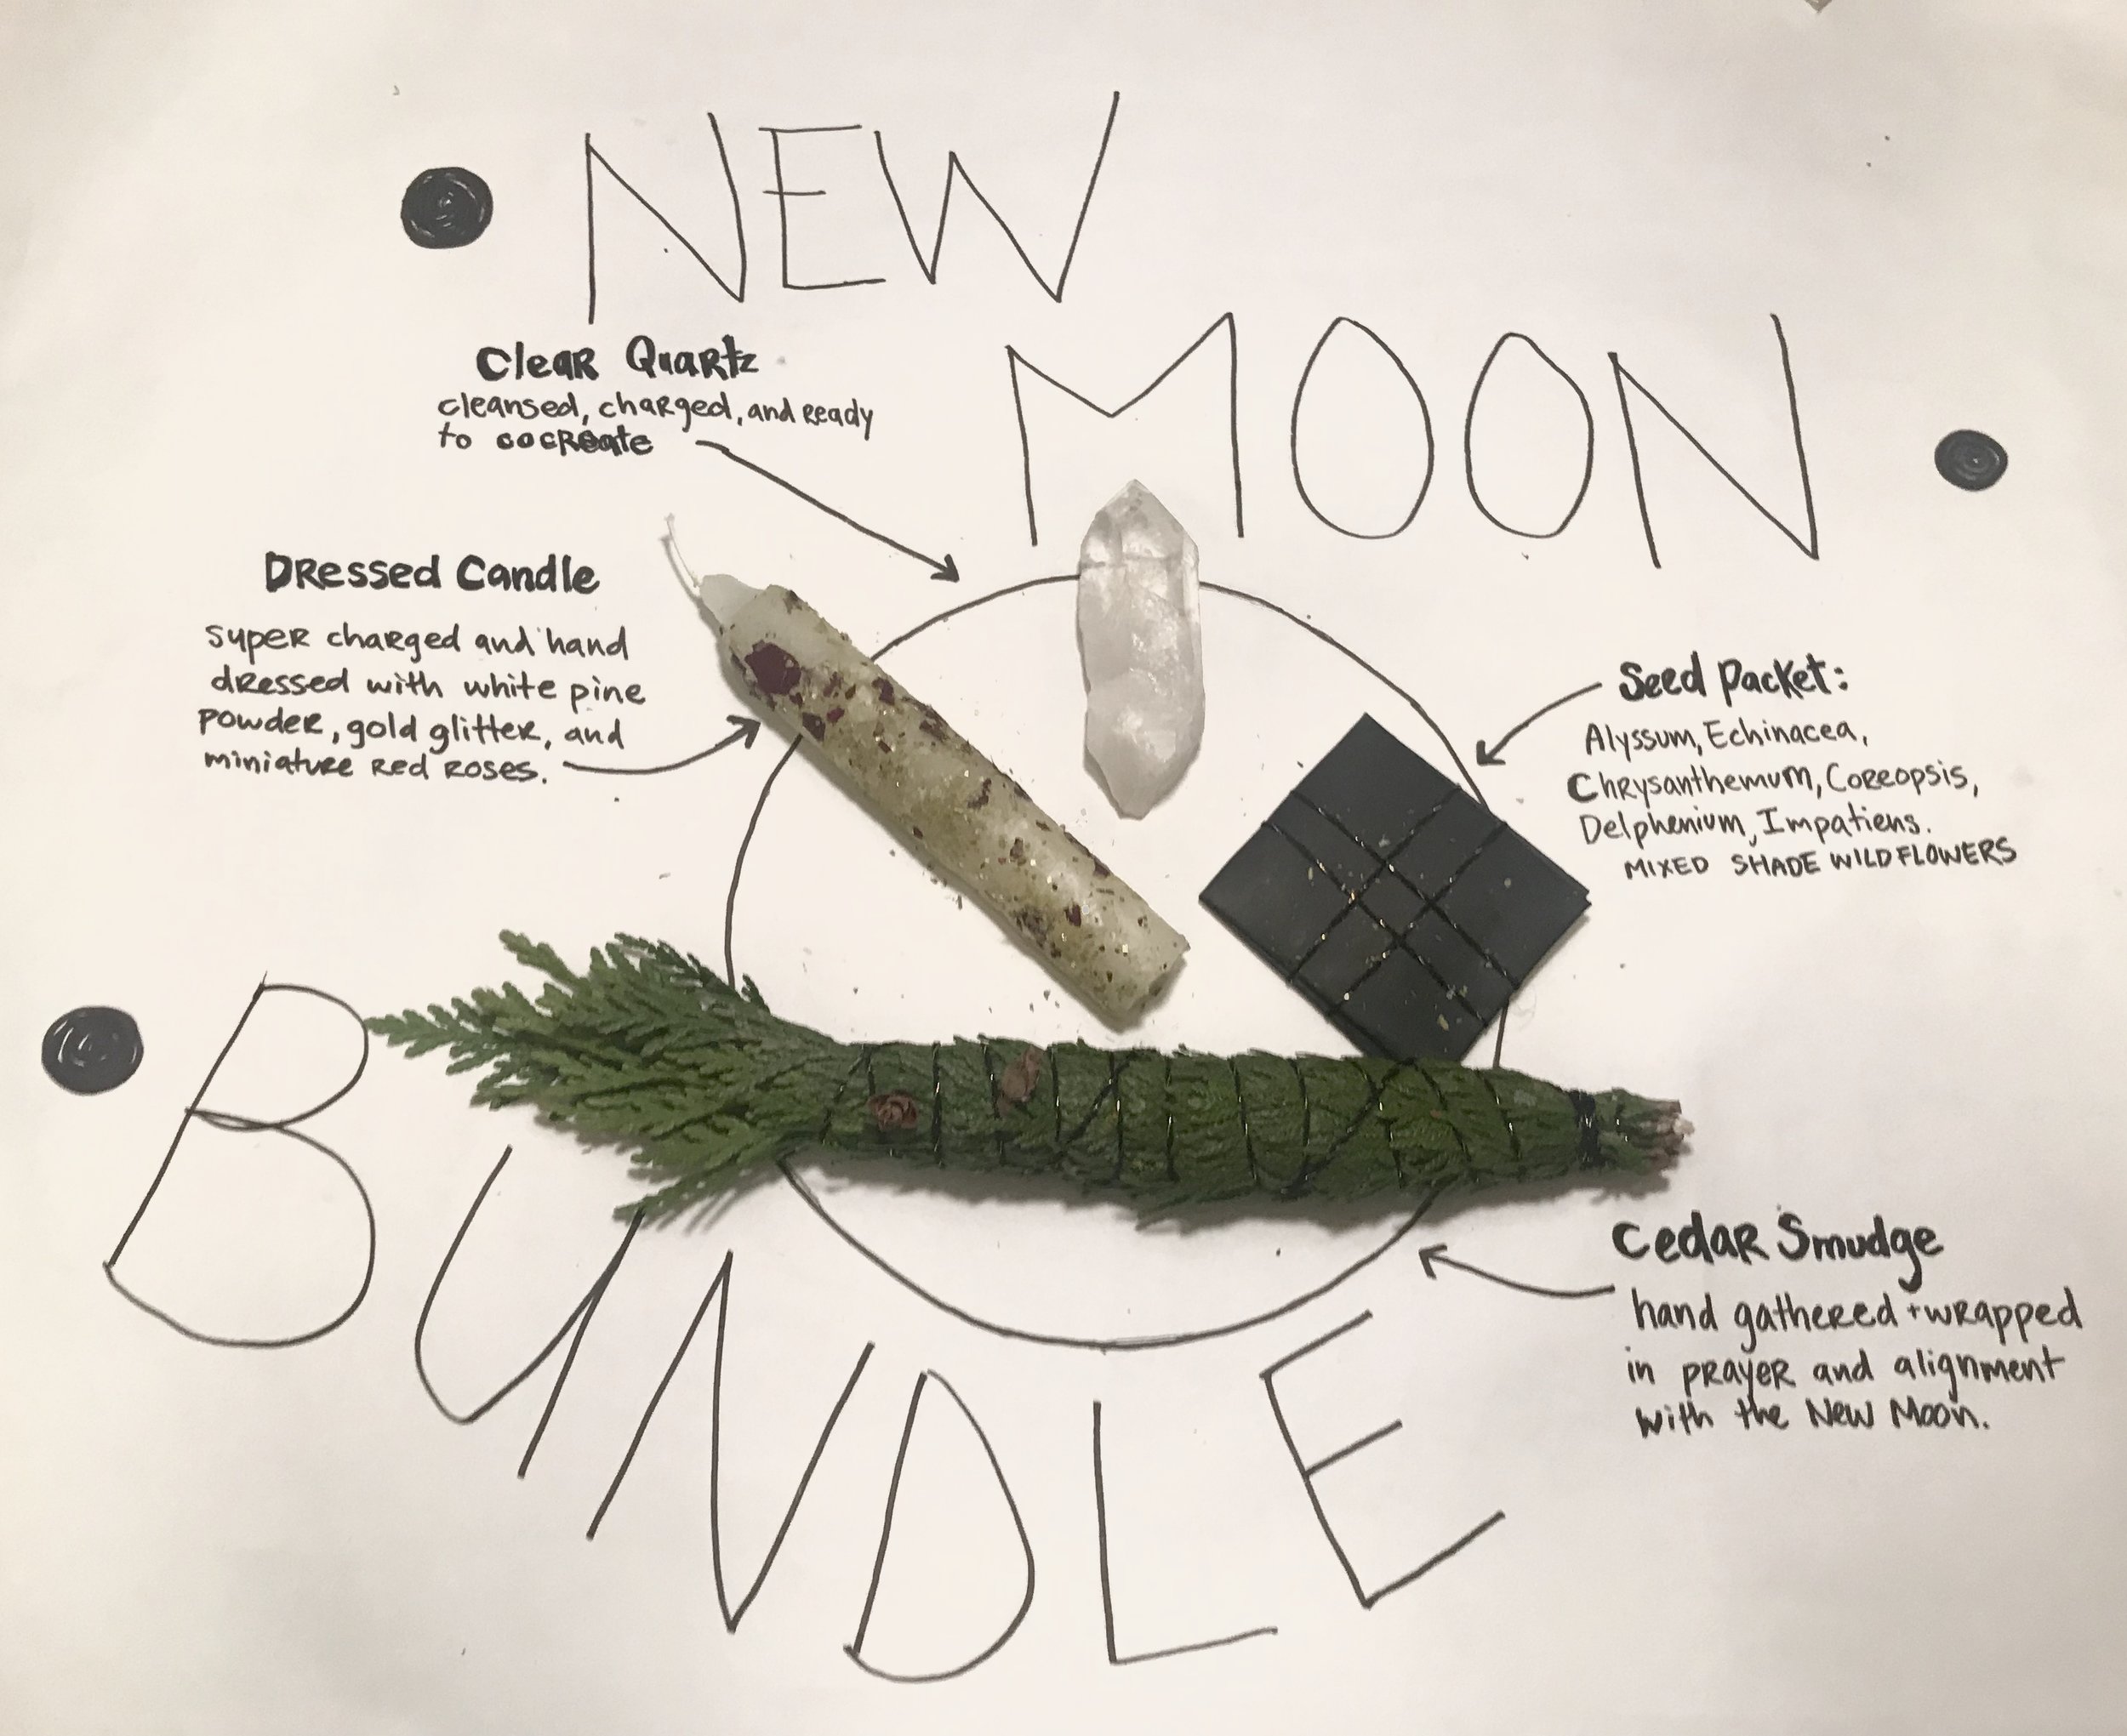 NEW
MOON
Clear Quartz
cleansed, charged, and ready
to cocreate
Dressed Candle
super charged and hand
dressed with white pine
powder, gold glitter, and
miniature red roses.
Seed Packet:
Alyssum, Echinacea,
Chrysanthemum, Coreopsis,
Delphenium, Impatiens.
MIXED SHADE WILDFLOWERS
Cedar Smudge
hand gathered + wrapped
in prayer and alignment
with the New Moon.
BUNDLE